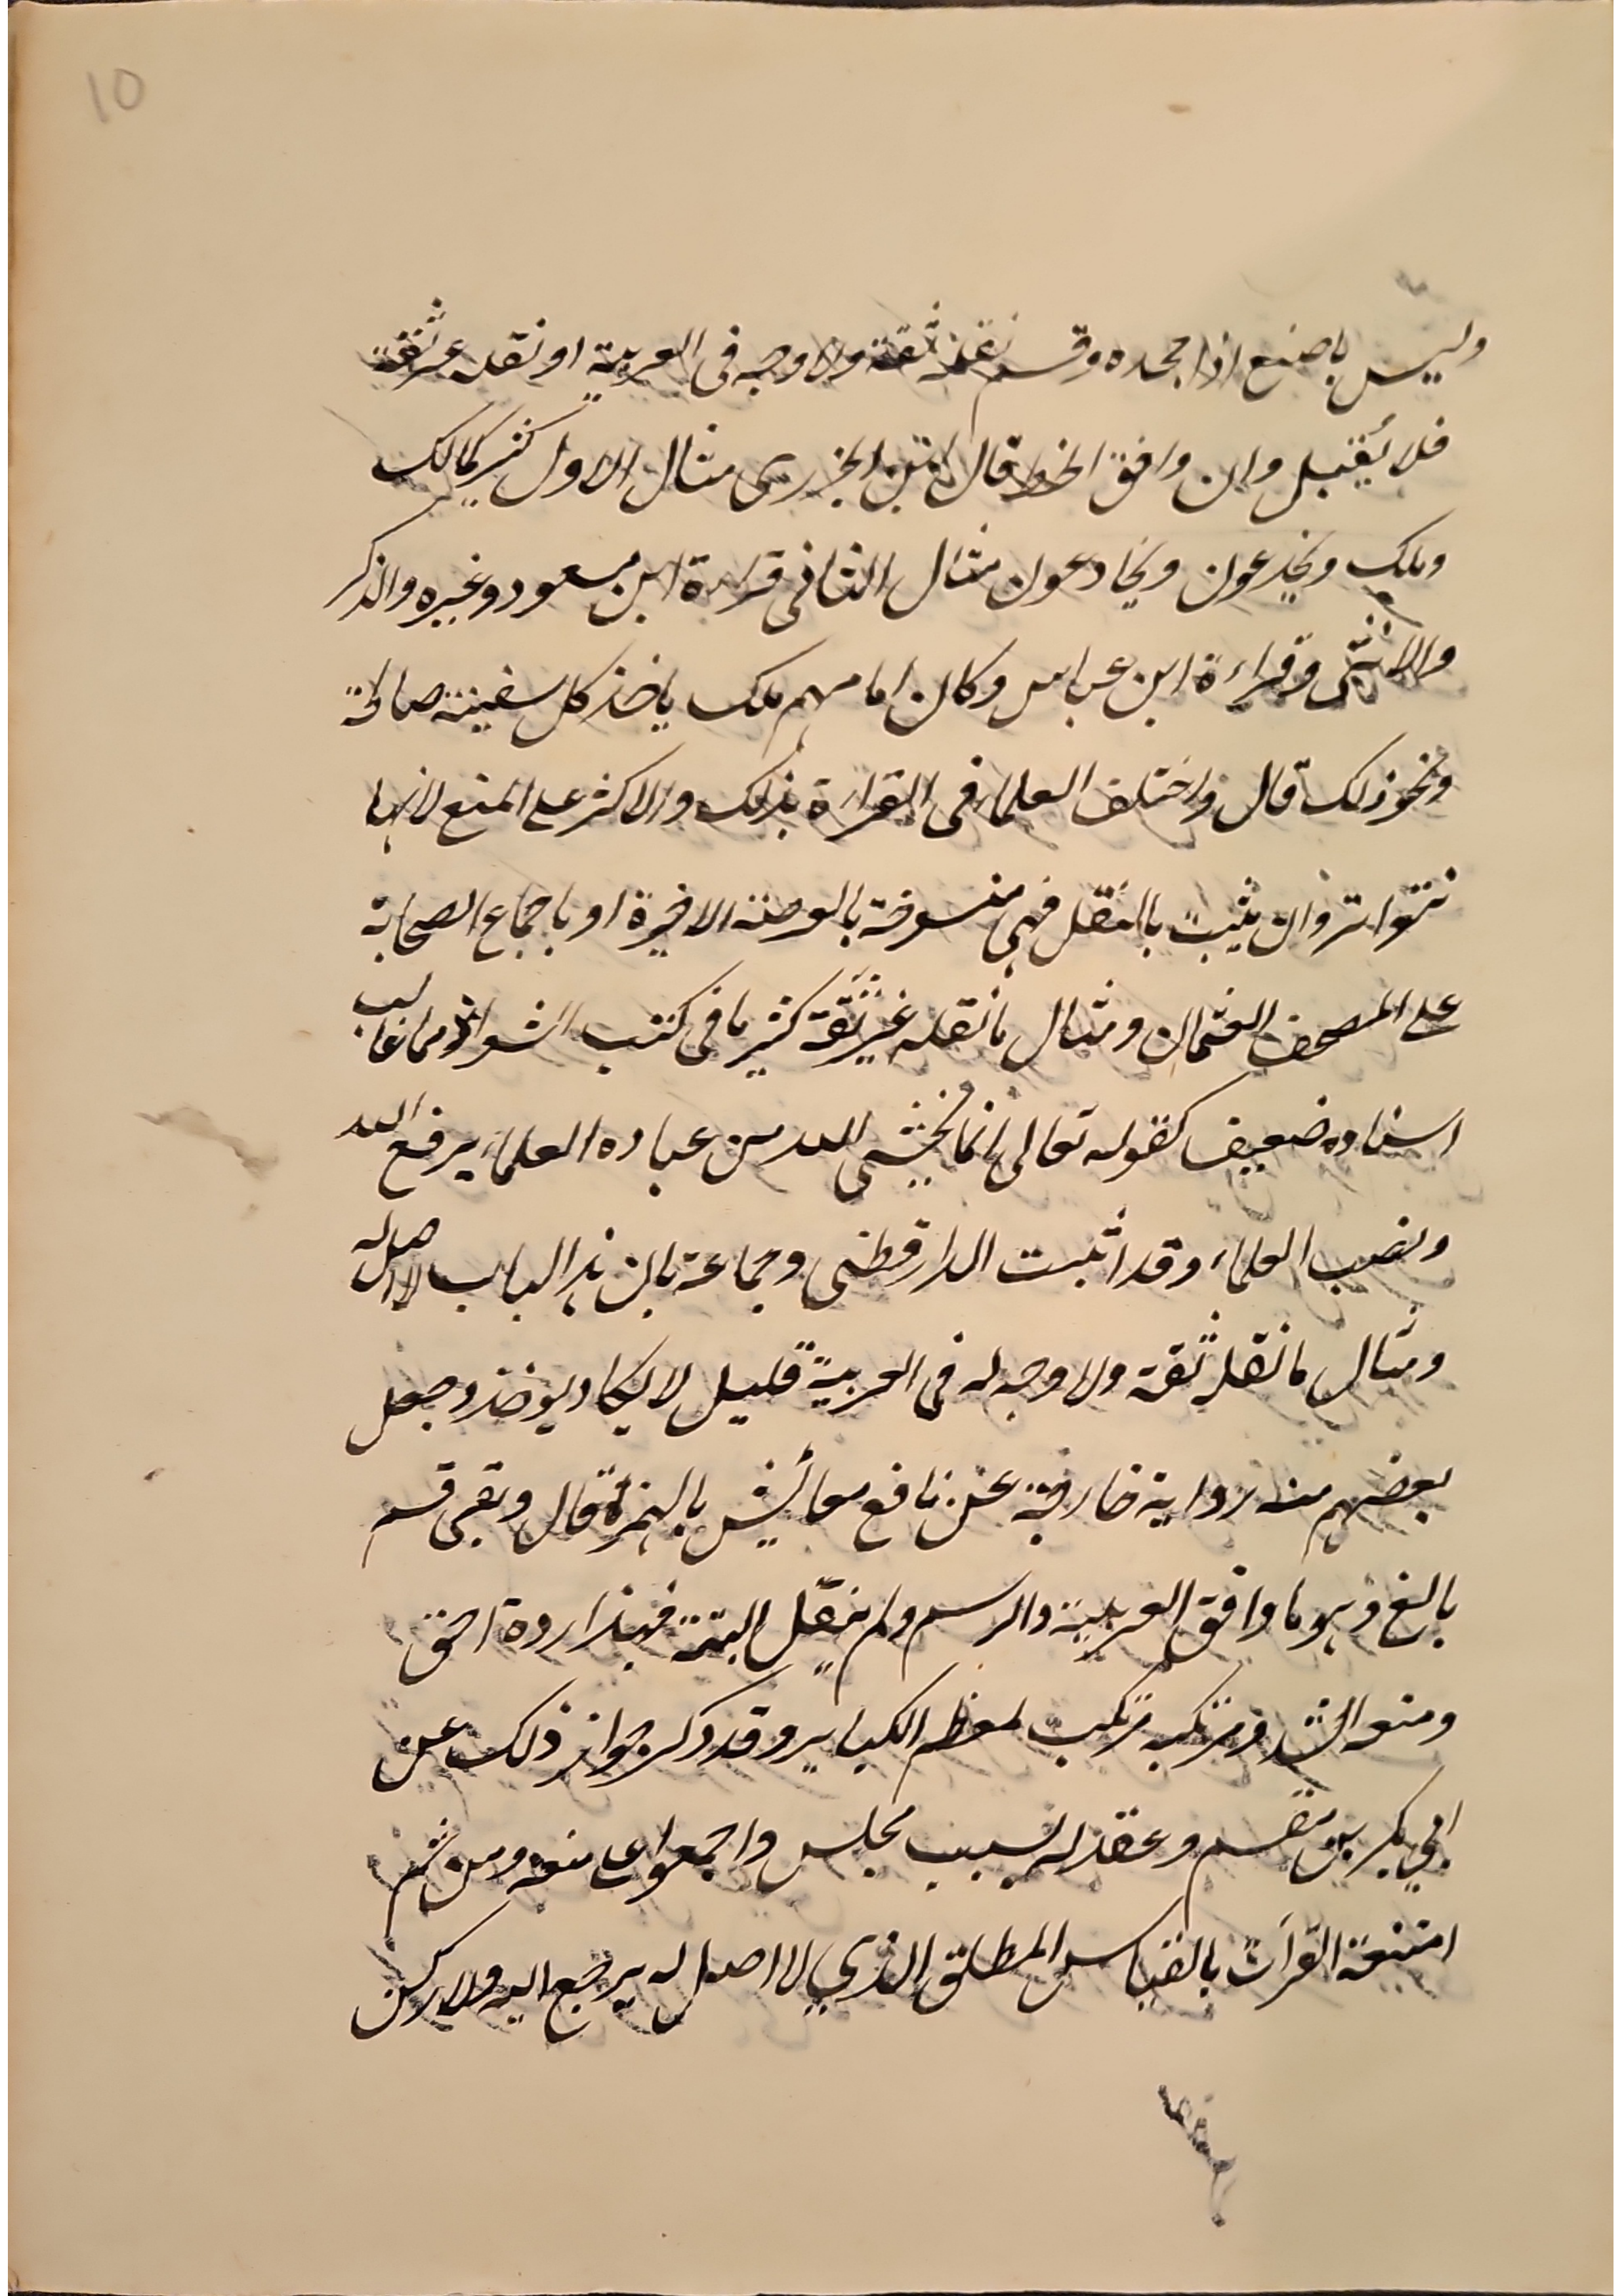 10
وليس ما صنع اذا جحده وقسم نقله ثقة ولا وجه فى العربية او نقله غير ثقة
فلا يُقبل وان وافق الخط قال ابن الجزرى مثال الاول كثير كمالك
وملك ويخدعون ويخادعون مثال الثانى قراءة ابن مسعود وغيره والذكر
والانثى وقراءة ابن عباس وكان امامهم ملك ياخذ كل سفينة صالحة
ونحو ذلك قال واختلف العلماء فى القراءة بذلك والاكثر على المنع لانها
تتواتر وان يثبت بالنقل فهى منسوخة بالعرضة الاخيرة او باجماع الصحابة
على المصحف العثمانى ومثال ما نقله غير ثقة كثير ما فى كتب الشواذ مما غالب
اسناده ضعيف كقوله تعالى انما يخشى الله من عباده العلماء يرفع الله
ونصب العلماء وقد اثبت الدارقطنى وجماعة بان هذا الباب لا اصل له
ومثال ما نقله ثقة ولا وجه له فى العربية قليل لا يكاد يوخذ وجعل
بعضهم منه رواية خارجة عن نافع معائش بالهمزة قال وبقى قسم
بالغ وهو ما وافق العربية والرسم ولم ينقل البتة فهذا رده احق
ومنعه اشد ومرتكبه مرتكب لمعظم الكباير وقد ذكر جواز ذلك عن
ابي بكر بن مقسم وعقد له بسبب مجلس واجمعوا على منعه ومن ثم
امتنعت القرآت بالقياس المطلق الذي لا اصل له يرجع اليه ولا ركن